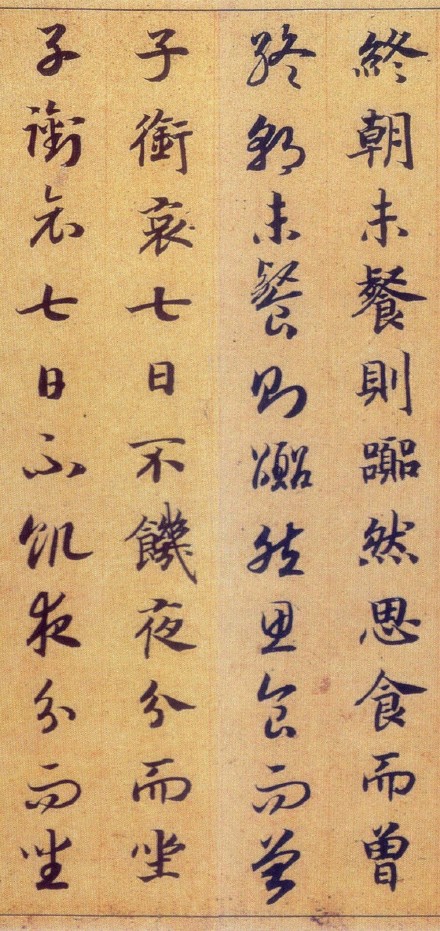 終朝未餐則囂然思食而曾
終朝未餐則囂然思食而曾
子銜哀七日不饑夜分而坐
子銜哀七日不飢夜分而坐